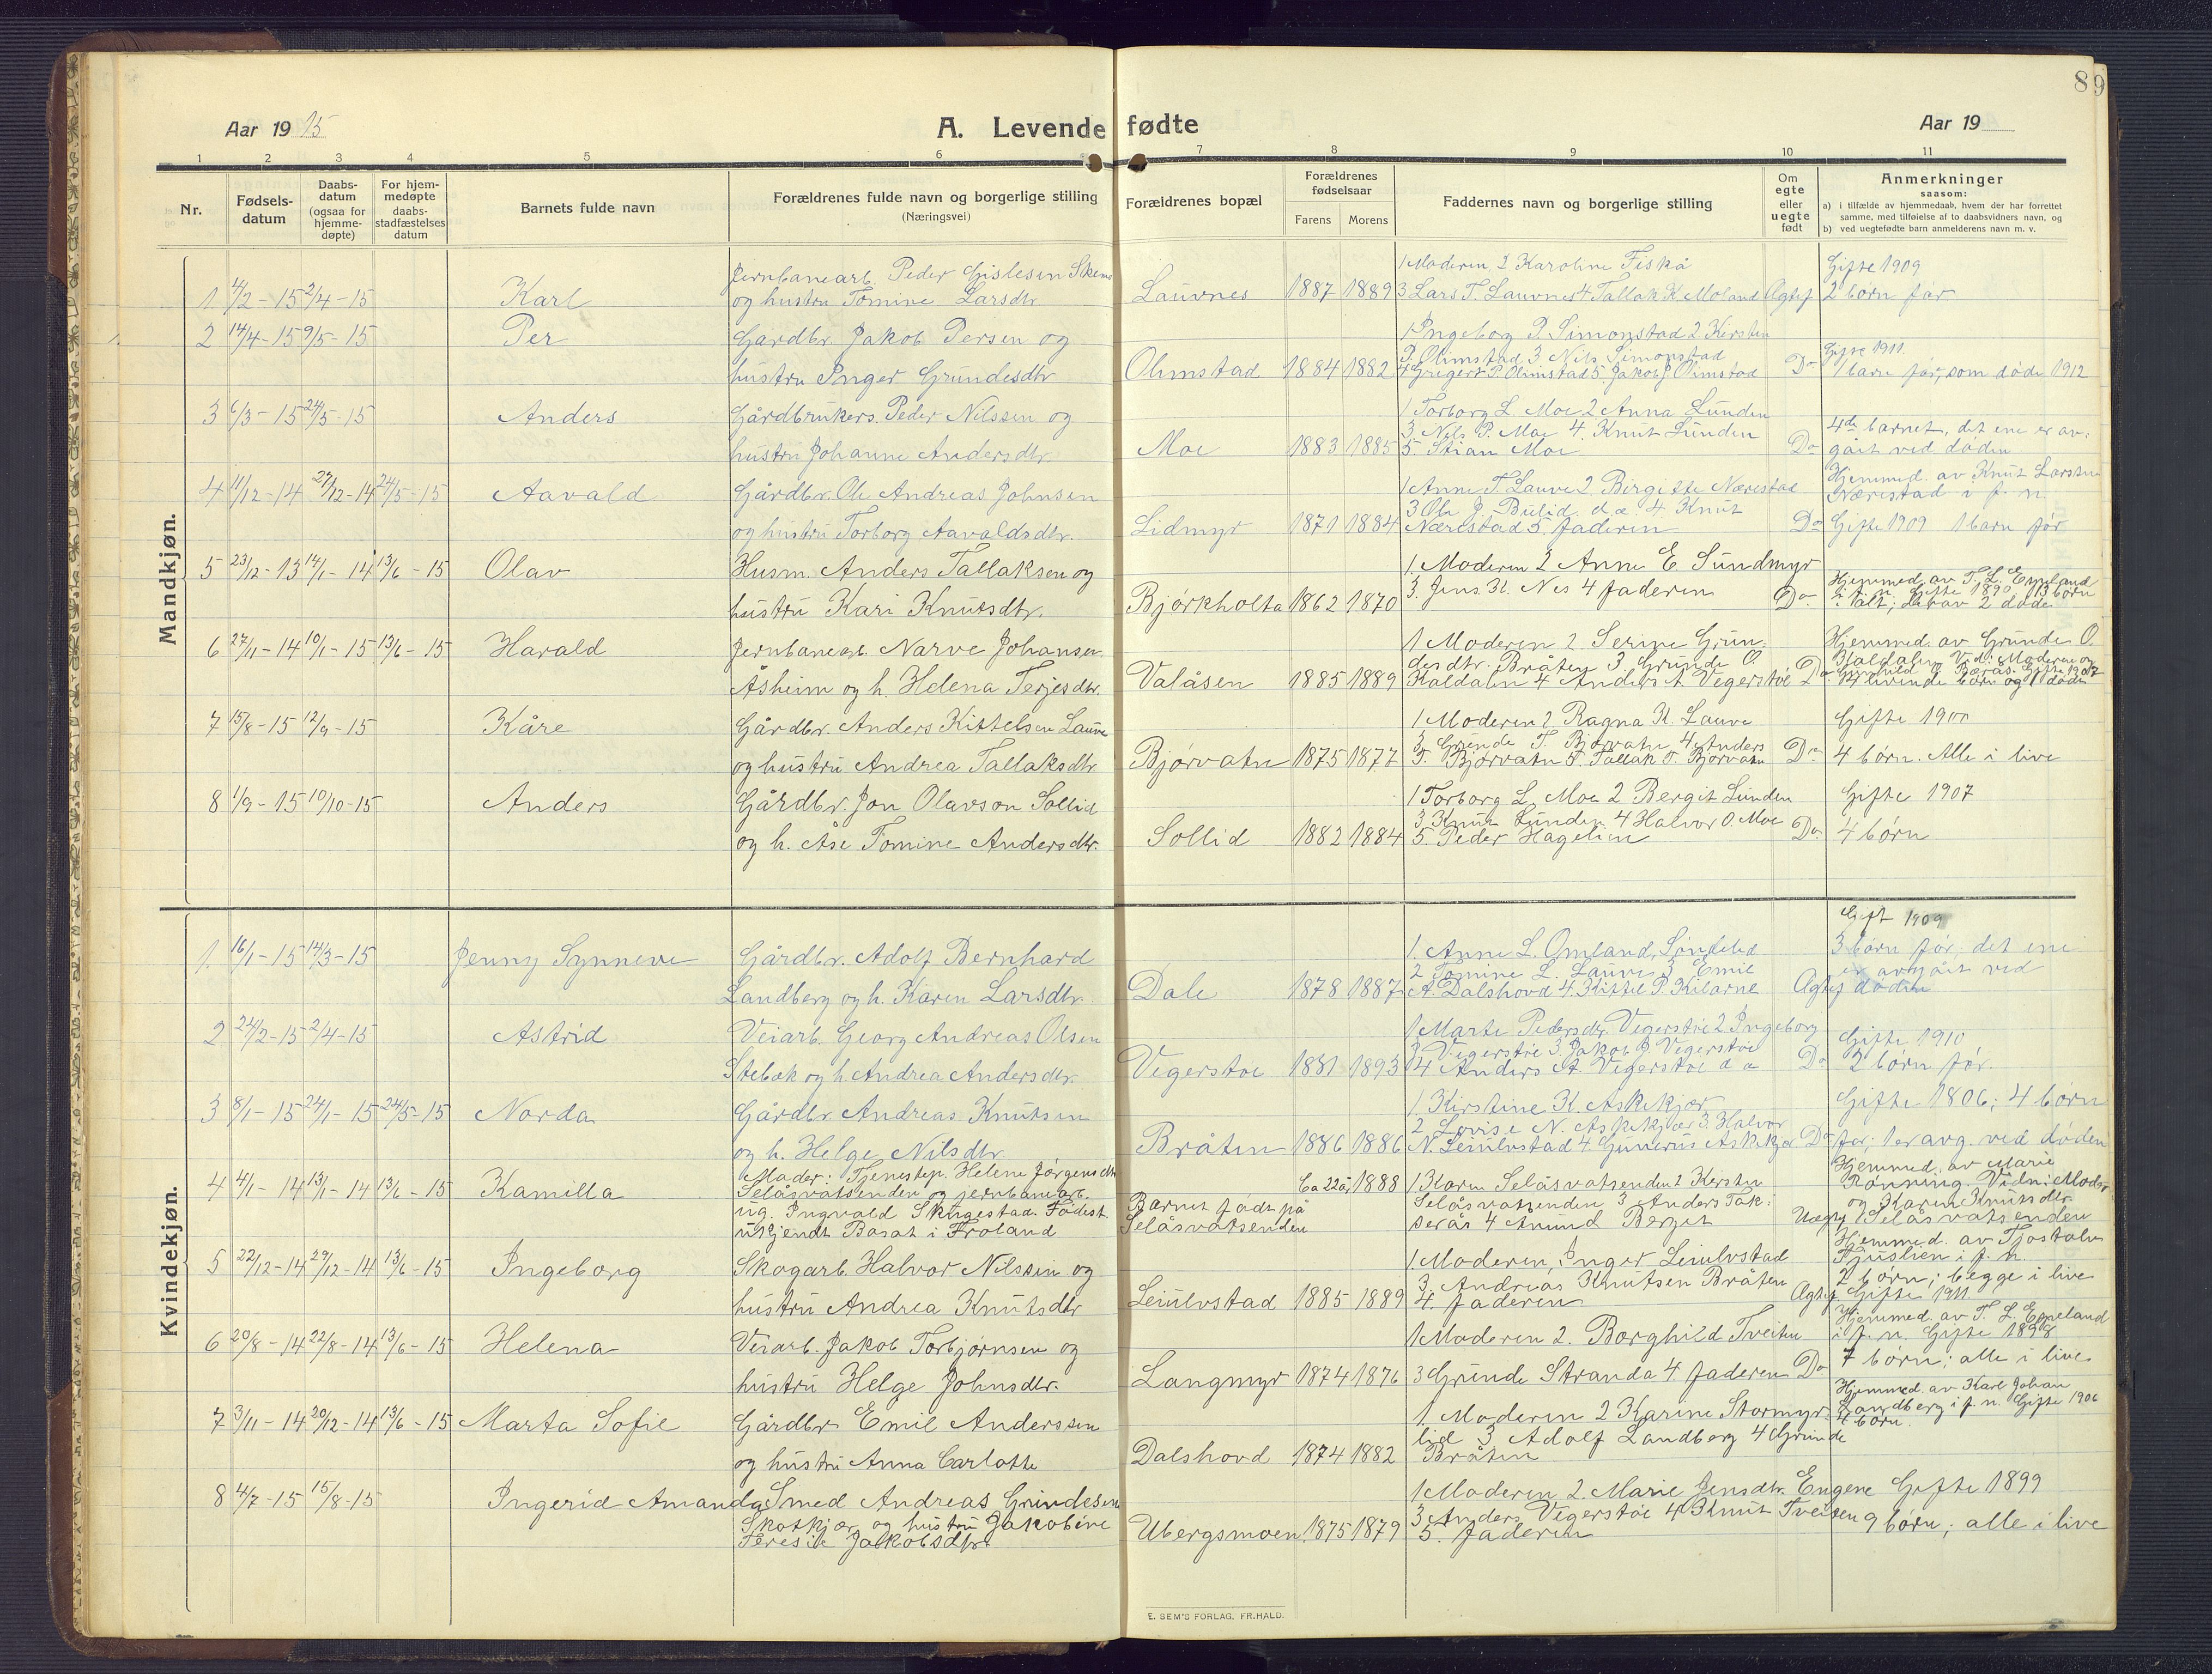 89
Aar 1915
A. Levende fødte
Aar 19
1 2 3 4 5 6 7 8 9 10 11
Nr.
Fødsels-
datum
Daabs-
datum
(ogsaa for
hjemme-
døpte)
For hjem-
medøpte
daabs-
stadfæstelses
datum
Barnets fulde navn
Forældrenes fulde navn og borgerlige stilling
(Næringsvei)
Forældrenes bopæl
Forældrenes
fødselsaar
Farens Morens
Faddernes navn og borgerlige stilling
Om
egte
eller
uegte
født
Anmerkninger
saasom:
a) i tilfælde av hjemmedaab, hvem der har forrettet
samme, med tilføielse af to daabsvidners navn, og
b) ved uegtefødte barn anmelderens navn m. v.
Mandkjøn.
1 4/2-15 2/4-15 Karl
Jernbanearb. Peder Gislesen
og hustru Tomine Larsdtr.
Lauvnes 1887 1889
1 Moderen 2 Karoline Fiskå
3 Lars T. Lauvnes 4 Tallak K. Moland
Ægtef
Gifte 1909
2 børn før
2 14/4-15 9/5-15 Per
Gårdbr. Jakob Persen og
hustru Inger Grundesdtr
Olimstad 1884 1882
1 Ingeborg P. Simonstad 2 Kirsten
P. Olimstad 3 Nils Simonstad
4 Grigert P. Olimstad 5 Jakob J. Olimstad
Do
Gifte 1911
1 barn før, som døde 1912
3 6/3-15 24/5-15 Anders
Gårdbrukers. Peder Nilssen og
hustru Johanne Andersdtr.
Moe 1883 1885
1 Torborg L. Moe 2 Anna Lunden
3 Nils P. Moe 4. Knut Lunden
5. Stian Moe
Do
4de barnet, det ene er av-
gået ved døden
4 11/12-14 27/12-14 24/5-15 Aavald
Gårdbr. Ole Andreas Johnsen
og hustru Torborg Aavaldsdtr.
Lidmyr 1871 1884
1 Anne T. Lauve 2 Birgitte Nærestad
3 Ole J. Bulid d.æ. 4 Knut
Nærestad 5. Faderen
Do
Hjemmed. av Knut Larsen
Nærestad i f. n.
Gifte 1909 1 barn før
5 23/12-13 14/1-14 13/6-15 Olav
Husm. Anders Tallaksen og
hustru Kari Knutsdtr.
Bjørkholta 1862 1870
1. Moderen 2 Anne E. Sundmyr
3. Jens Kl. Nes 4 Faderen
Do
Hjemmed. av T. L. Eppeland
i f. n. Gifte 1890, 13 børn
i alt; derav 2 døde
6 27/11-14 10/1-15 13/6-15 Harald
Jernbanearb. Narve Johansen
Åsheim og h. Helena Terjesdtr.
Valåsen 1885 1889
1 Moderen 2 Serine Grun-
desdtr. Bråten 3 Grunde O.
Haldalen 4 Anders A. Vegerstøl
Do
Hjemmed. av Grunde O.
Haldalen Vid.: Moderen og
Gunhild Gifte 1907
4 levende børn og 1 døde
7 15/8-15 12/9-15 Kåre
Gårdbr. Anders Kittelsen Lauve
og hustru Andrea Tallaksdtr
Bjørvatn 1875 1877
1 Moderen 2 Ragna K. Lauve
3 Grunde T. Bjørvatn 4 Anders
T. Bjørvatn 5. Tallak T. Bjørvatn
Do
Gifte 1900
4 børn. Alle i live
8 1/9-15 10/10-15 Anders
Gårdbr. Jon Olavson Sollid
og h. Åse Tomine Andersdtr.
Sollid 1882 1884
1 Torborg L. Moe 2 Bergit Lunden
3 Knut Lunden 4 Halvor O. Moe
5. Peder Hagelien
Do
Gifte 1907
4 børn
Kvindekjøn.
1. 16/1-15 14/3-15 Jenny Synneve
Gårdbr. Adolf Bernhard
Landberg og h. Karen Larsdtr.
Dale 1878 1887
1. Anne L. Omland, Søndeled
2 Tomine L. Lauve 3 Emil
A. Dalshovd 4. Kittil P. Kilarne
Ægtef
Gift 1909
3 børn før det ene
er avgået ved
døden
2 24/2-15 2/4-15 Astrid
Veiarb. Georg Andreas Olsen
Stebæk og h. Andrea Andersdtr.
Vegerstøl 1881 1893
1 Marte Pedersdtr. Vegerstøl 2 Ingeborg
Vegerstøl 3 Jakob J. Vegerstøl
4 Anders A. Vegerstøl
Do
Gifte 1910
2 børn før.
3 8/1-15 24/1-15 24/5-15 Norda
Gårdbr. Andreas Knutsen
og h. Helge Nilsdtr.
Bråten 1886 1886
1 Kirstine K. Askekjær
2 Lovise N. Askekjær 3. Halvor
N. Leiulvstad 4 Gunerius Askekjær
Do
Gifte 1806; 4 børn
før; 1 er avg. ved døden
4 4/1-14 13/1-14 13/6-15 Kamilla
Moder: Tjenestep. Helene Jørgensdtr
Selåsvatsenden og jernbanearb.
ug. Ingvald Skugestad. Fødest
ukjendt Bosat i Froland
Barnet født på
Selåsvatsenden
Ca 22 å. 1888
1 Karen Selåsvatsenden 2 Kirsten
Selåsvatsenden 3 Anders Tak-
serås 4 Amund Berget
Uægte
Hjemmed. av Marie
Rønning. Vidn: Moder
og Karen Knutsdtr
Selåsvatsenden
5 22/12-14 29/12-14 13/6-15 Ingeborg
Skogarb. Halvor Nilssen og
hustru Andrea Knutsdtr
Leiulvstad 1885 1889
1 Moderen, Inger Leiulvstad
3. Andreas Knutsen Bråten
4. Faderen
Ægtef.
Hjemmed. av Tjostolv
Fjuslien i f. n.
2 børn; begge i live
Gifte 1911
6 20/8-14 22/8-14 13/6-15 Helena
Veiarb. Jakob Torbjørnsen og
hustru Helge Johnsdtr.
Langmyr 1874 1876
1 Moderen 2. Borghild Tveiten
3 Grunde Stranda 4 Faderen
Do
Hjemmed. av T. L. Eppeland
i f. n. Gifte 1898
7 børn; alle i live
7 3/11-14 20/12-14 13/6-15 Marta Sofie
Gårdbr. Emil Anderssen
og hustru Anna Carlotte
Dalshovd 1874 1882
1. Moderen 2 Karine Stormyr-
lid 3 Adolf Landberg 4 Grunde
Bråten
Hjemmed. av Karl Johan
Landberg i f. n. Gifte 1906
4 børn.
8 4/7-15 15/8-15 Ingerid Amanda
Smed Andreas Grundesen
Skotkjær og hustru Jakobine
Teresie Jakobsdtr
Ubergsmoen 1875 1879
1 Moderen 2 Marie Jensdtr. Engene
3 Anders Vegerstøl 4 Knut Tveiten
5. Faderen
Gifte 1899
9 børn; alle i live
E. SEM'S FORLAG, FR.HALD.